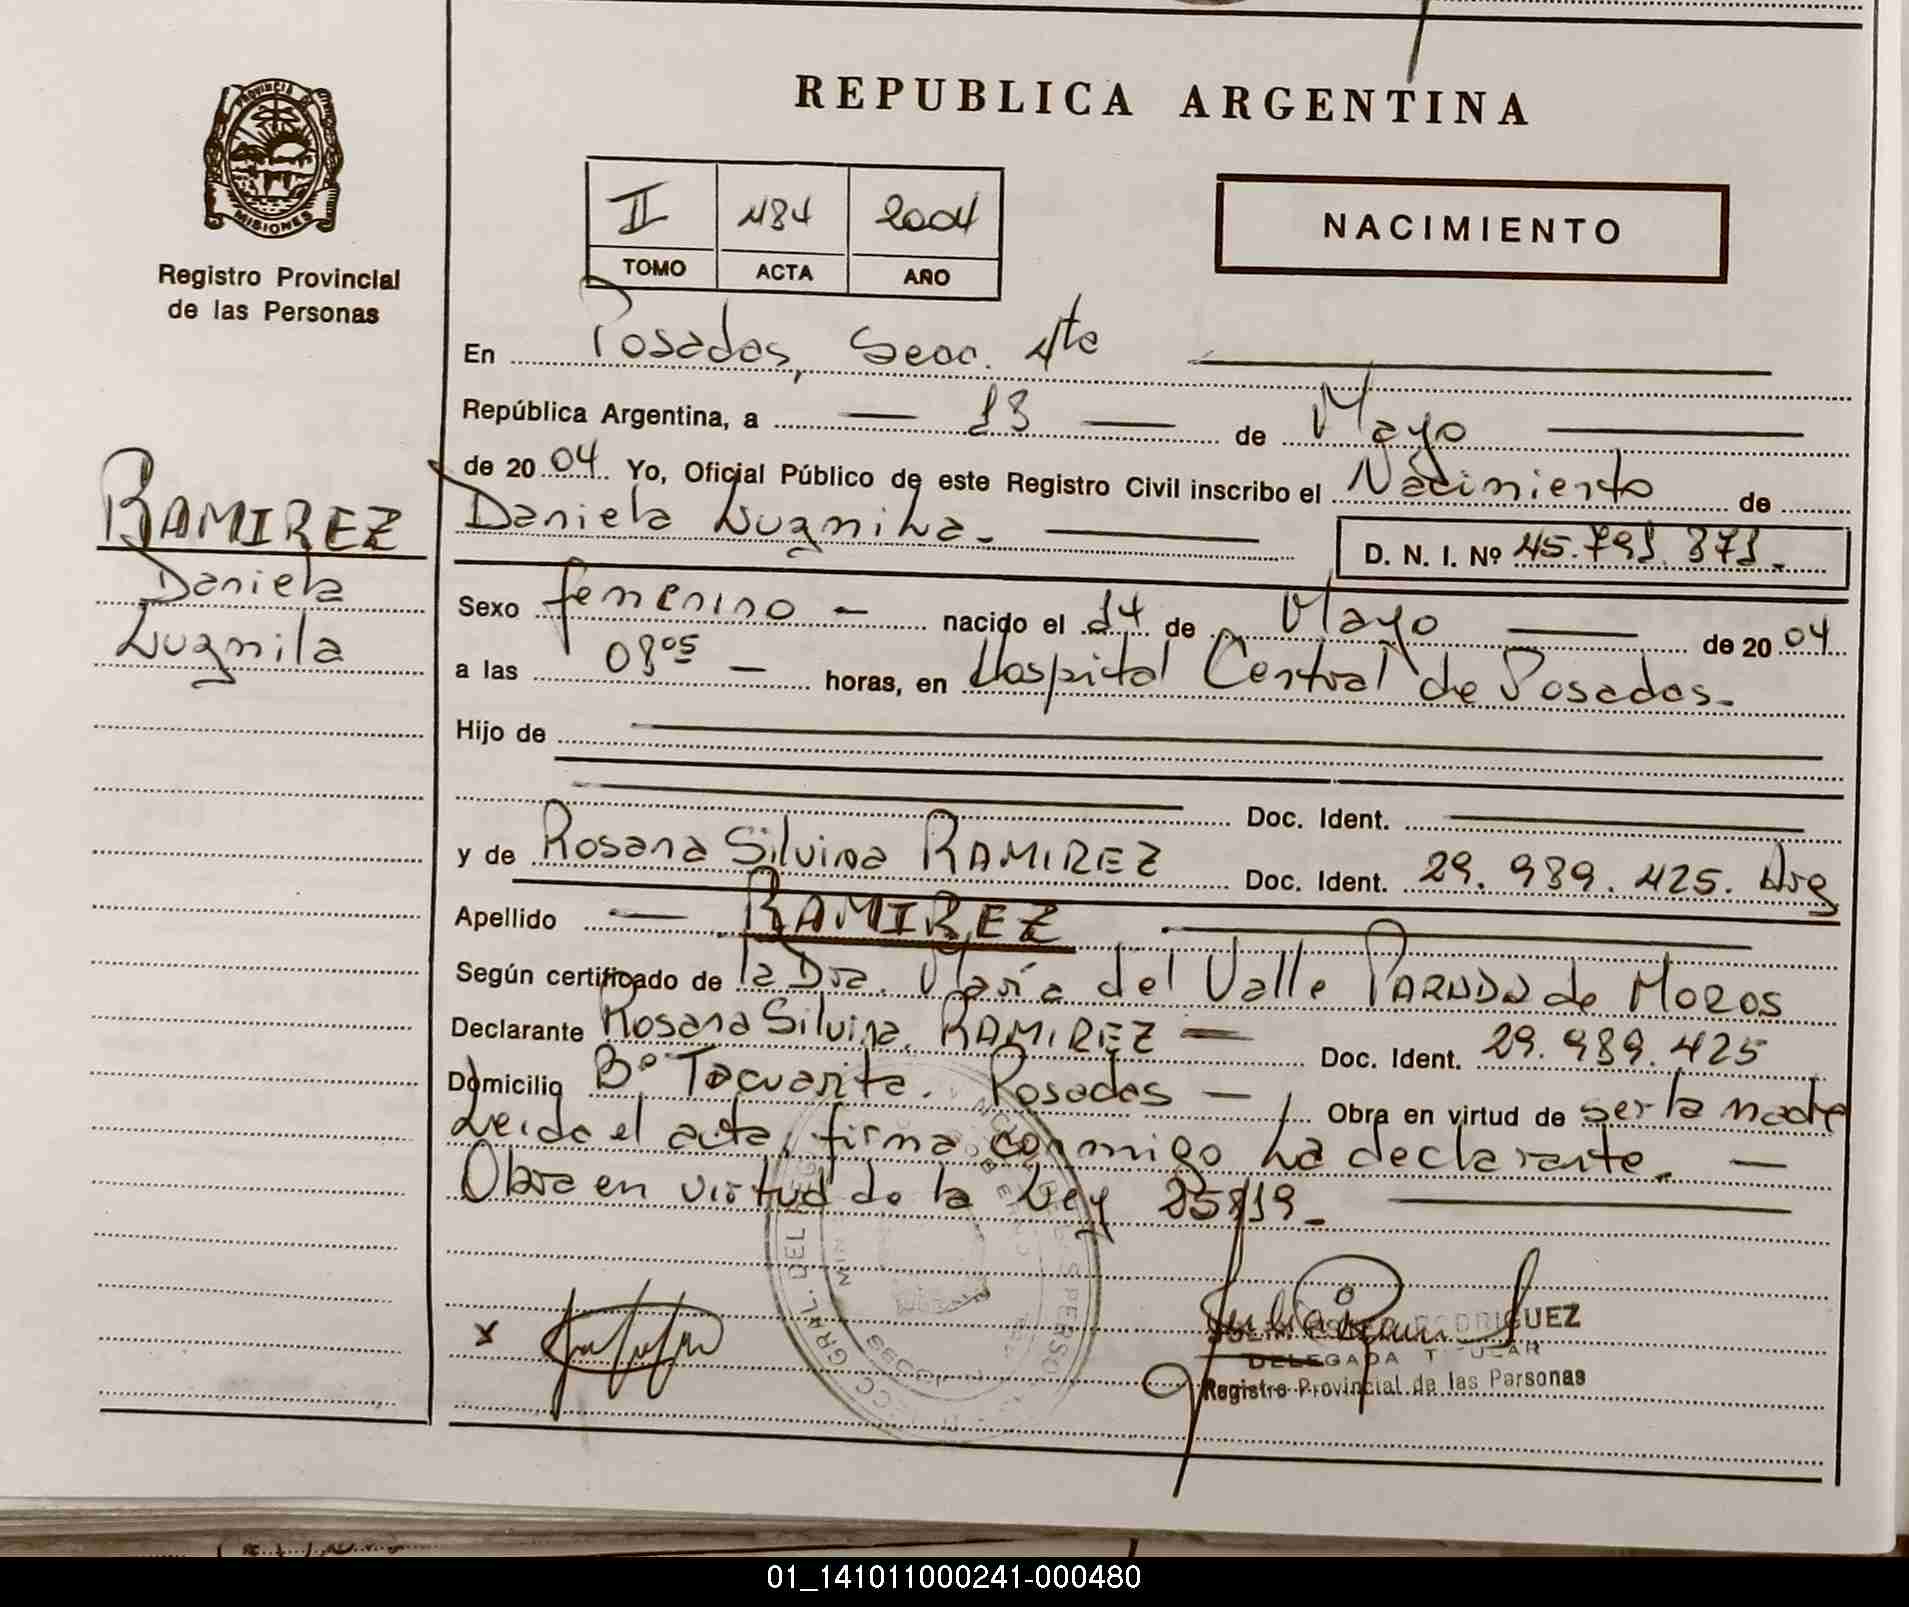 REPUBLICA ARGENTINA
PROVINCIA DE
MISIONES
Registro Provincial
de las Personas
II 484 2004
TOMO ACTA AÑO
NACIMIENTO
En Posadas, Secc. 4ta
República Argentina, a 13 de Mayo
de 2004 Yo, Oficial Público de este Registro Civil inscribo el Nacimiento de
Daniela Luzmila.
D. N. I. Nº 45.791.371.
RAMIREZ
Daniela
Luzmila
Sexo femenino nacido el 14 de Mayo de 2004
a las 0805 horas, en Hospital Central de Posadas.
Hijo de
Doc. Ident.
y de Rosana Silvina RAMIREZ Doc. Ident. 29.989.425. Arg
Apellido RAMIREZ
Según certificado de la Dra. María del Valle PARADA de MOROS
Declarante Rosana Silvina RAMIREZ Doc. Ident. 29.989.425
Domicilio Bº Tacuarita. Posadas Obra en virtud de ser la madre
Leida el acta, firma conmigo la declarante.
Obra en virtud de la Ley 25819.
x
RODRIGUEZ
DELEGADA TITULAR
Registro Provincial de las Personas
01_141011000241-000480